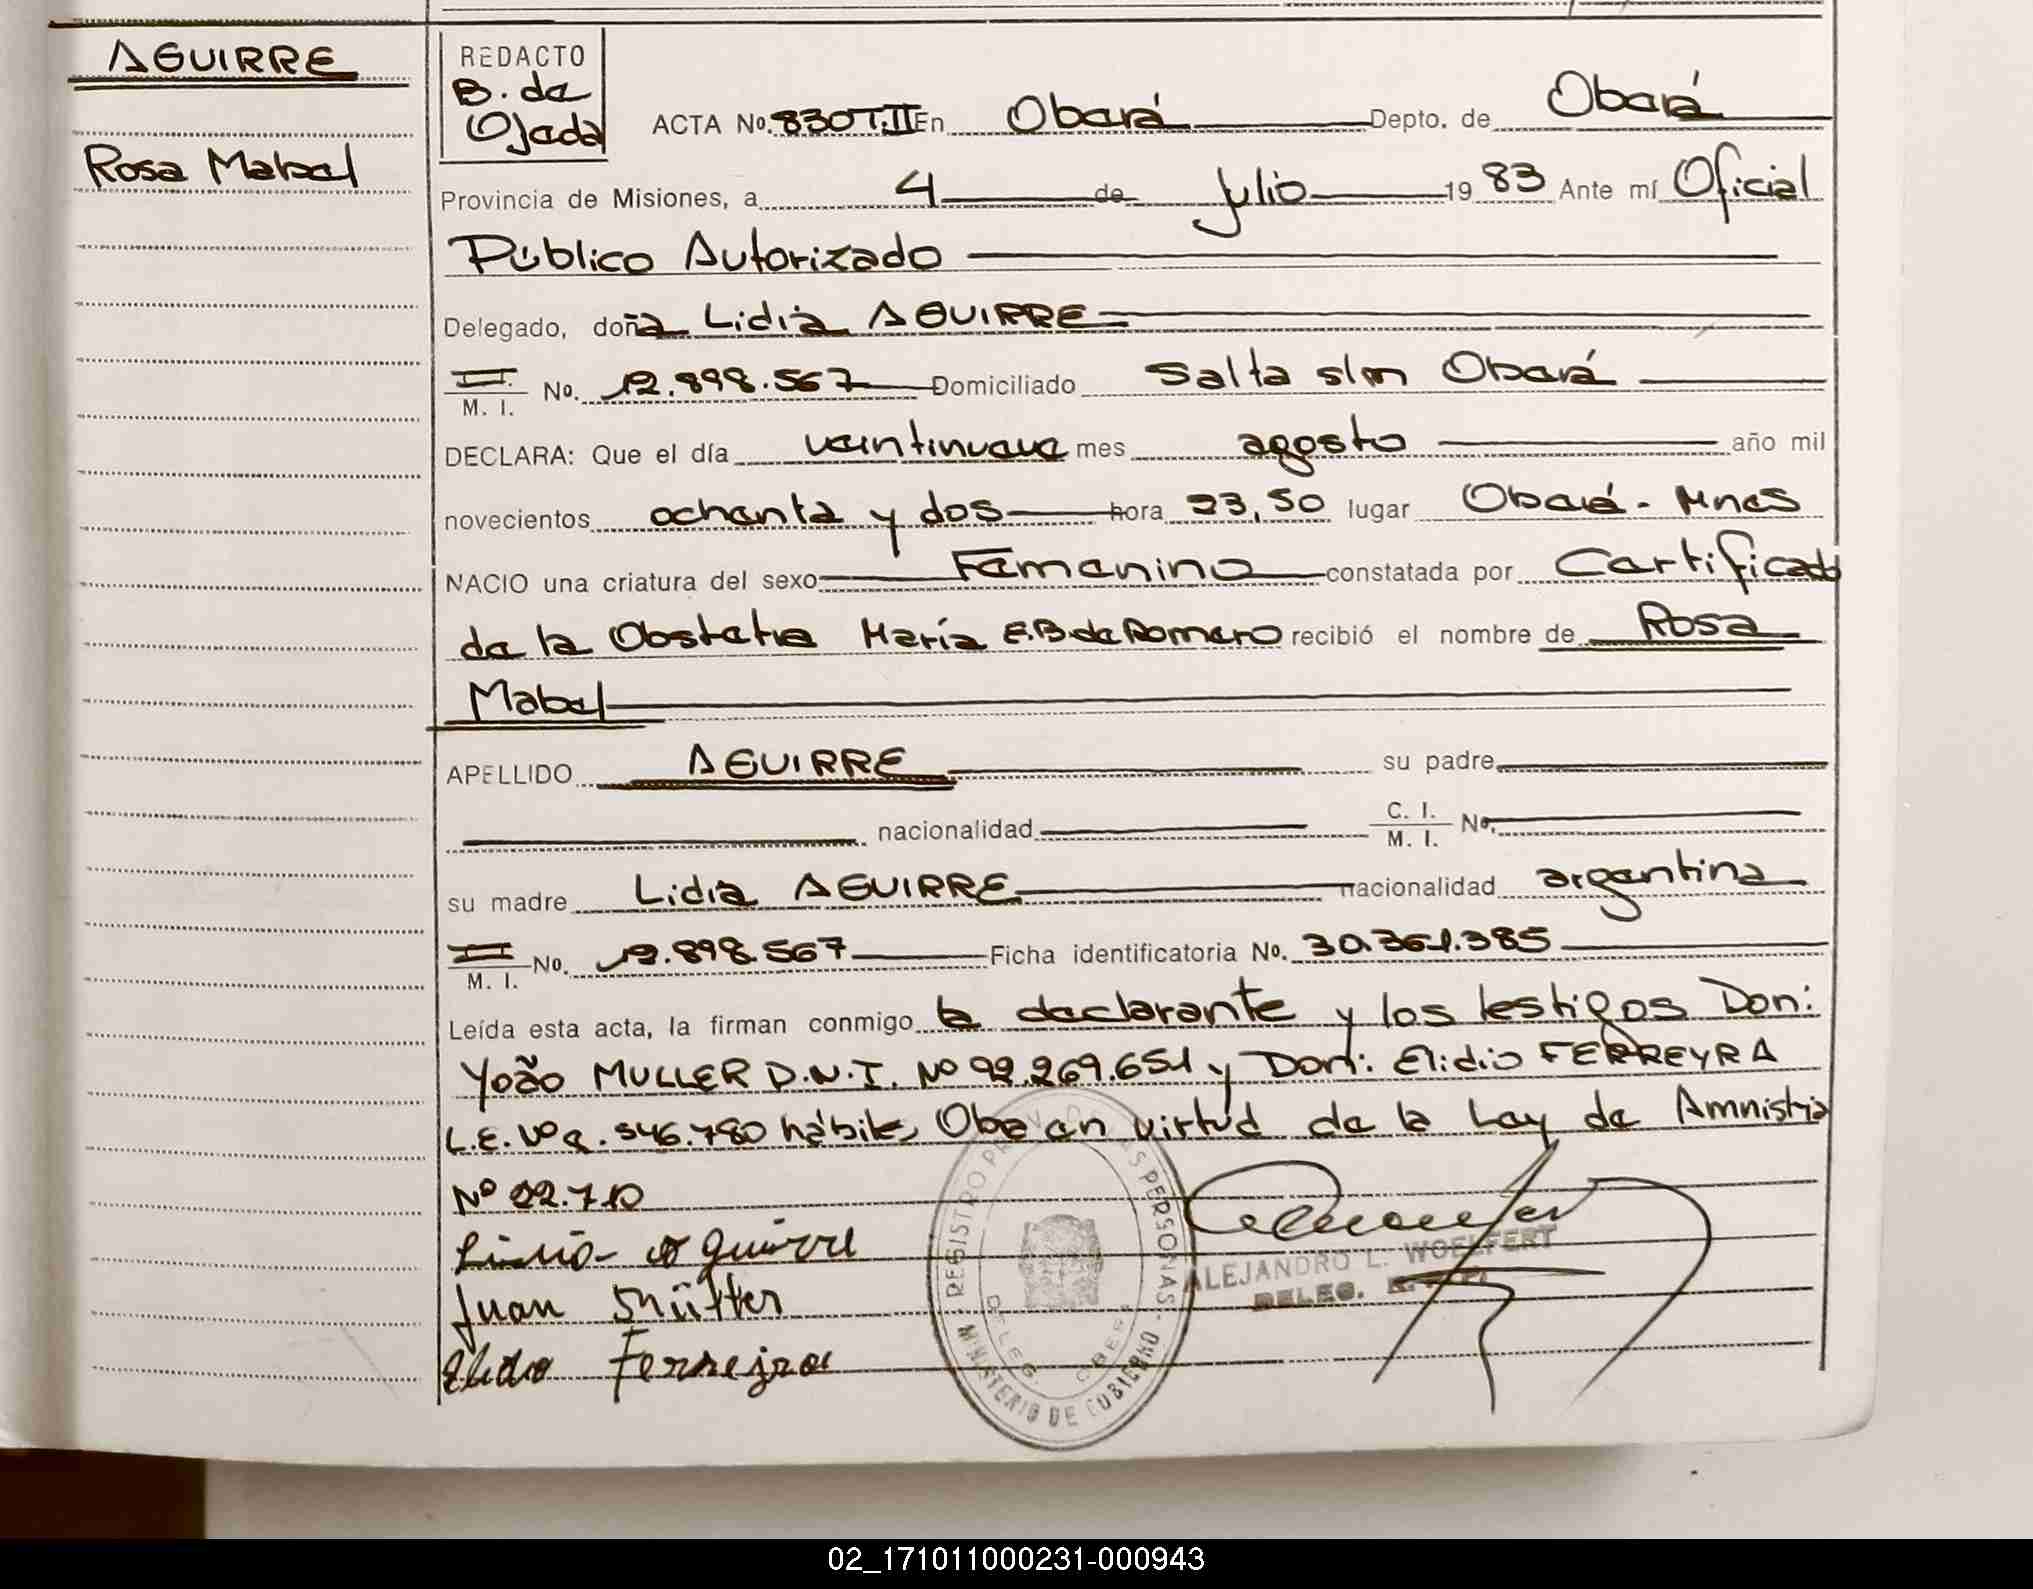 AGUIRRE
Rosa Mabel
REDACTO
B. de
Ojeda
ACTA No. 830 T.II En Oberá Depto. de Oberá
Provincia de Misiones, a 4 de Julio 1983 Ante mí Oficial
Público Autorizado
Delegado, doña Lidia AGUIRRE
M. I. No. 12.898.567 Domiciliado Salta s/n Oberá
DECLARA: Que el día veintinueve mes agosto año mil
novecientos ochenta y dos hora 23,50 lugar Oberá - Mnes
NACIO una criatura del sexo Femenino constatada por Certificado
de la Obstetra María E.B de Romero recibió el nombre de Rosa
Mabel
APELLIDO AGUIRRE su padre
nacionalidad C. I. M. I. No.
su madre Lidia AGUIRRE nacionalidad argentina
M. I. No. 12.898.567 Ficha identificatoria No. 30.361.385
Leída esta acta, la firman conmigo la declarante y los testigos Don:
Yoão MULLER D.N.I. Nº 92.269.651 y Don: Elidio FERREYRA
L.E. Nº .546.780 hábiles, Obra en virtud de la Ley de Amnistia
Nº 22.710
Lidia Aguirre
Juan
Elidio Ferreira
REGISTRO PROV. DE LAS PERSONAS
DELEG. OBERA
MINISTERIO DE GOBIERNO
ALEJANDRO L. WOELFERT
DELEG.
02_171011000231-000943